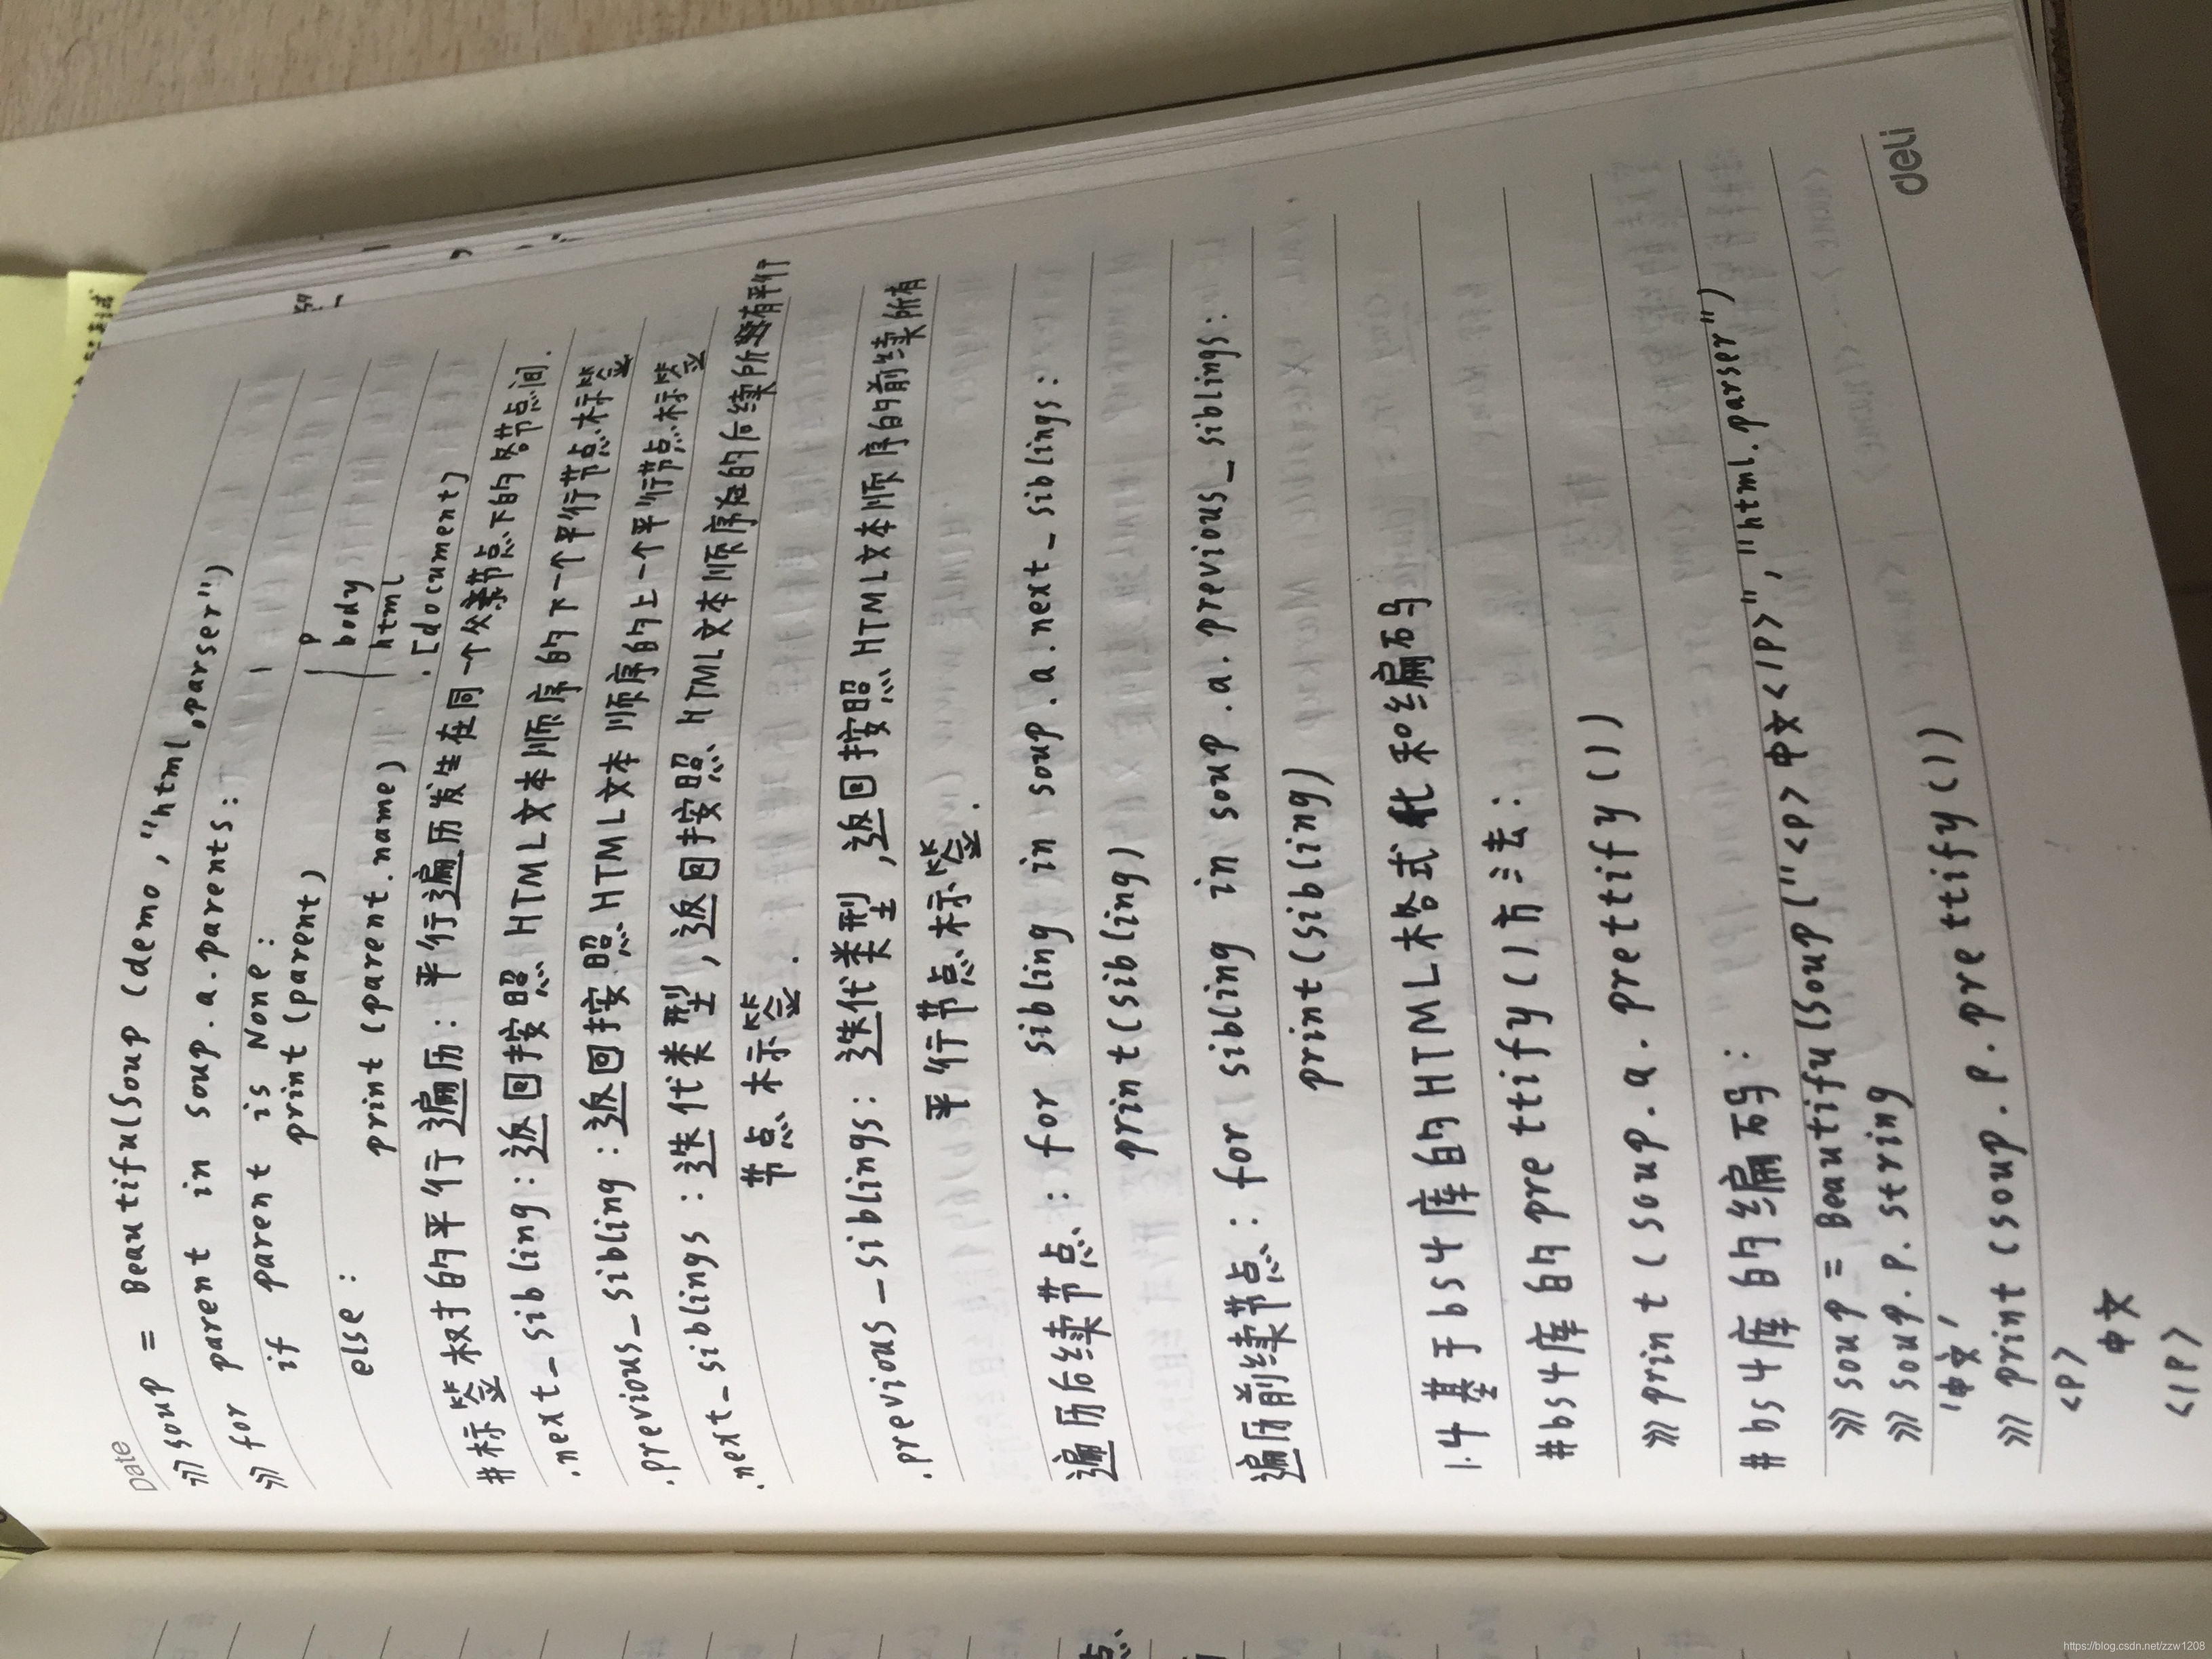 Date
>>> soup = BeautifulSoup (demo, "html.parser")
>>> for parent in soup.a.parents:
if parent is None:
print(parent)
else:
print(parent.name)
p
body
html
[document]
#标签树的平行遍历: 平行遍历发生在同一个父节点下的各节点间.
.next_sibling: 返回按照HTML文本顺序的下一个平行节点标签
.previous_sibling: 返回按照HTML文本顺序的上一个平行节点标签
.next_siblings: 迭代类型, 返回按照HTML文本顺序的后续所有平行
节点标签.
.previous_siblings: 迭代类型, 返回按照HTML文本顺序的前续所有
平行节点标签.
遍历后续节点: for sibling in soup.a.next_siblings:
print(sibling)
遍历前续节点: for sibling in soup.a.previous_siblings:
print(sibling)
1.4 基于bs4库的HTML格式化和编码
#bs4库的prettify()方法:
>>> print(soup.a.prettify())
#bs4库的编码:
>>> soup = BeautifulSoup("<p>中文</p>","html.parser")
>>> soup.p.string
'中文'
>>> print(soup.p.prettify())
<p>
中文
</p>
deli
https://blog.csdn.net/zzw1208